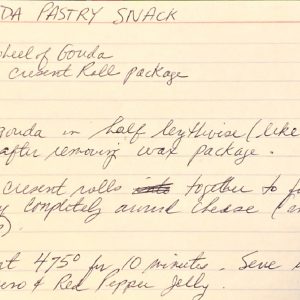 DA PASTRY SNACK
wheel of Gouda
cresent Roll package
gouda in half lengthwise (like
after removing wax package.
cresent rolls together to
completely around cheese
at 475° for 10 minutes. Seve
& Red Pepper Jelly.